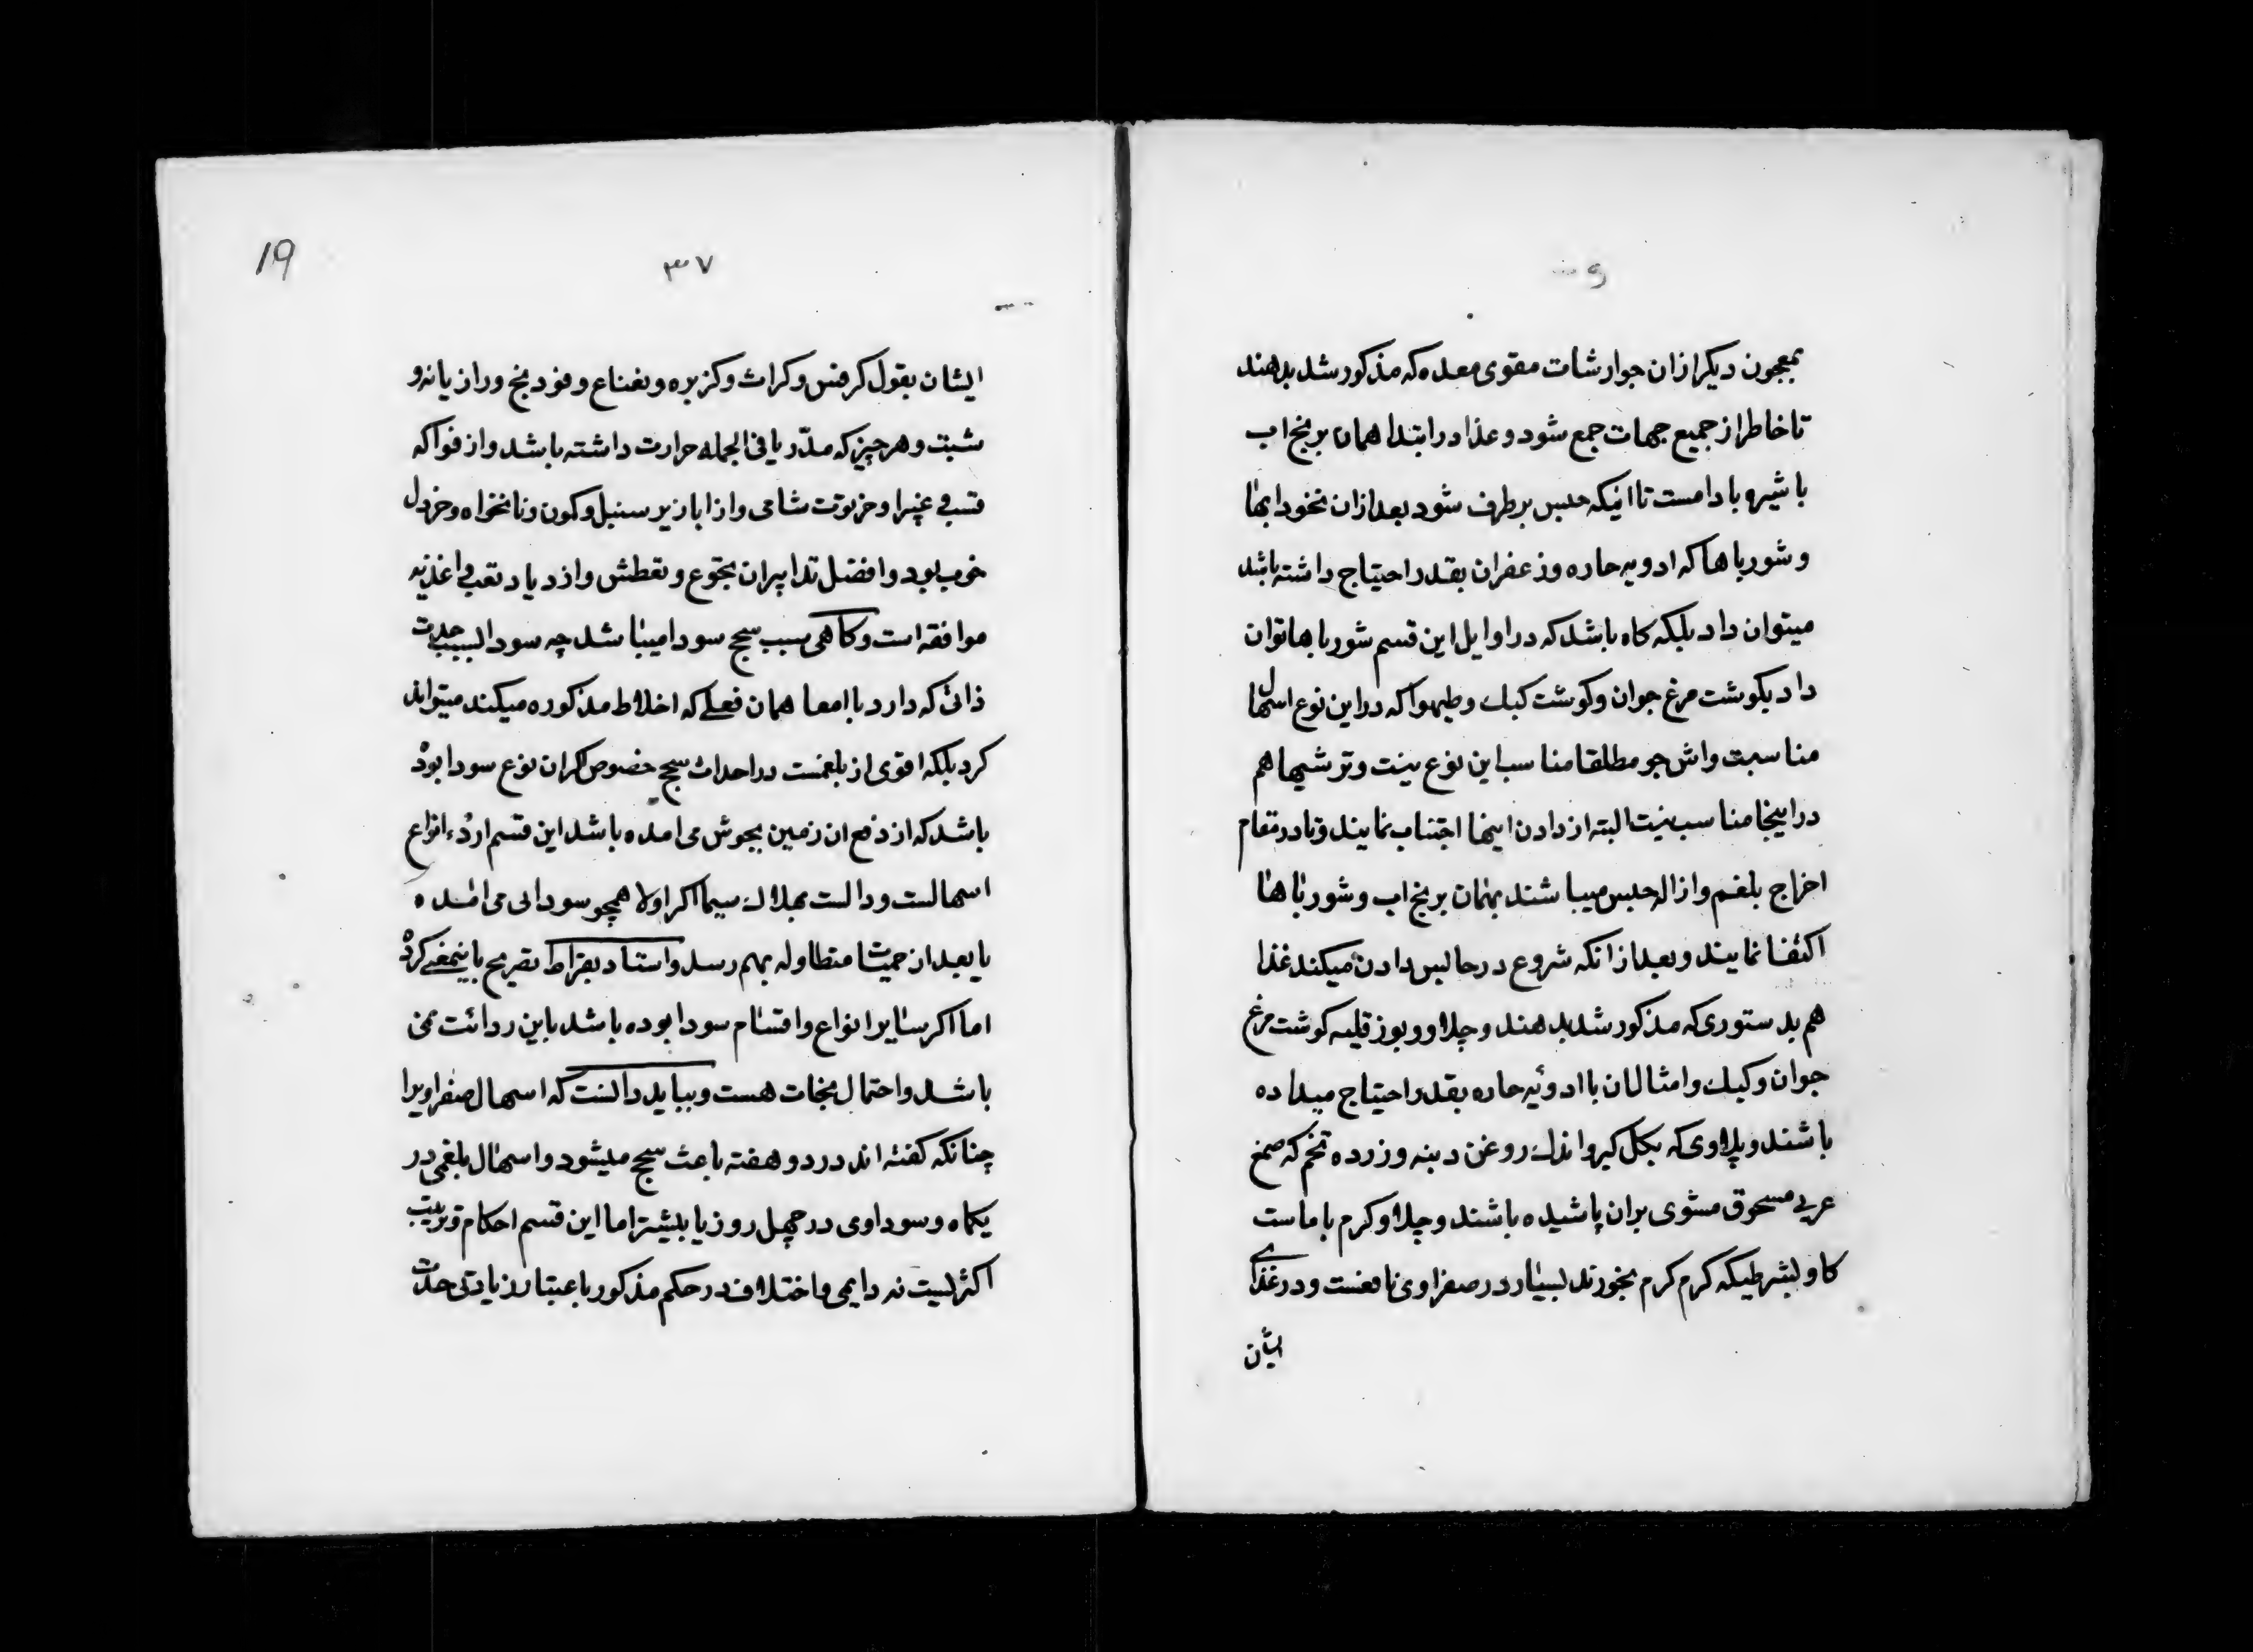 بمعجون دیکر ازان جوارشات مقوی معده که مذکور شد بدهند
تا خاطر از جمیع جهات جمع شود و غذا در ابتدا همان برنج اب
با شیره بادامست تا اینکه حبس برطرف شود بعد ازان نخود ابها
و شورباها که ادویه حاره و زعفران بقدر احتیاج داشته باشد
میتوان داد بلکه کاه باشد که در اوایل این قسم شورباها توان
داد بکوشت مرغ جوان و کوشت کبک و طیهوا که در این نوع اسهال
مناسبت واش جو مطلقا مناسب این نوع نیست و ترشیها هم
در اینجا مناسب نیست البته از دادن اینها اجتناب نمایند و تا در مقام
اخراج بلغم و ازاله حبس میباشند بهمان برنج اب و شورباها
اکتفا نمایند و بعد از انکه شروع در حابس دادن میکند غذا
هم بدستوری که مذکور شد بدهند و چلاو و بوز قلیه کوشت مرغ
جوان و کبک و امثال ان با ادویه حاره بقدر احتیاج میداده
باشند و پلاوی که بکل کیرو اندک روغن دنبه و زرده تخم که صمغ
عربی مسحوق مشوی بران پاشیده باشند و چلاو کرم با ماست
کاو بشرطیکه کرم کرم بخورند بسیار در صفراوی نافعست و در غذای
ایشان
۳۷
19
ایشان بقول کرفس و کراث و کزبره و نعناع و فودنج و رازیانه و
شبت و هر چیز که مدّر یا فی الجمله حرارت داشته باشد و از فواکه
قسب غبیرا و خرنوت شامی و از ابازیر سنبل و کمون و نانخواه و خردل
خوب بود و افضل تدابیران تجوع و تعطش و ازدیاد تعب و اغذیه
موافقه است و کاهی سبب سحج سودا میباشد چه سودا بسبب حدت
ذاتی که دارد با امعا همان فعلی که اخلاط مذکوره میکند میتواند
کرد بلکه اقوی از بلغمست در احداث سحج خصوص اکران نوع سودا بوده
باشد که از دفع ان زمین بجوش می امده باشد این قسم اردء انواع
اسهالست و دالست بهلاک سیما اکر اولا همچو سودائی می امده
یا بعد از حمیات متطاوله بهم رسد و استاد بقراط تصریح باینمعنی کرده
اما اکر سایر انواع و اقسام سودا بوده باشد باین ردائت نمی
باشد و احتمال نجات هست و بباید دانست که اسهال صفراویرا
چنانکه کفته اند در دو هفته باعث سحج میشود و اسهال بلغمی در
یکماه و سوداوی در چهل روز یا بیشتر اما این قسم احکام و ترتیب
اکثریست نه دایمی و اختلاف در حکم مذکور باعتبار زیادتی حدت